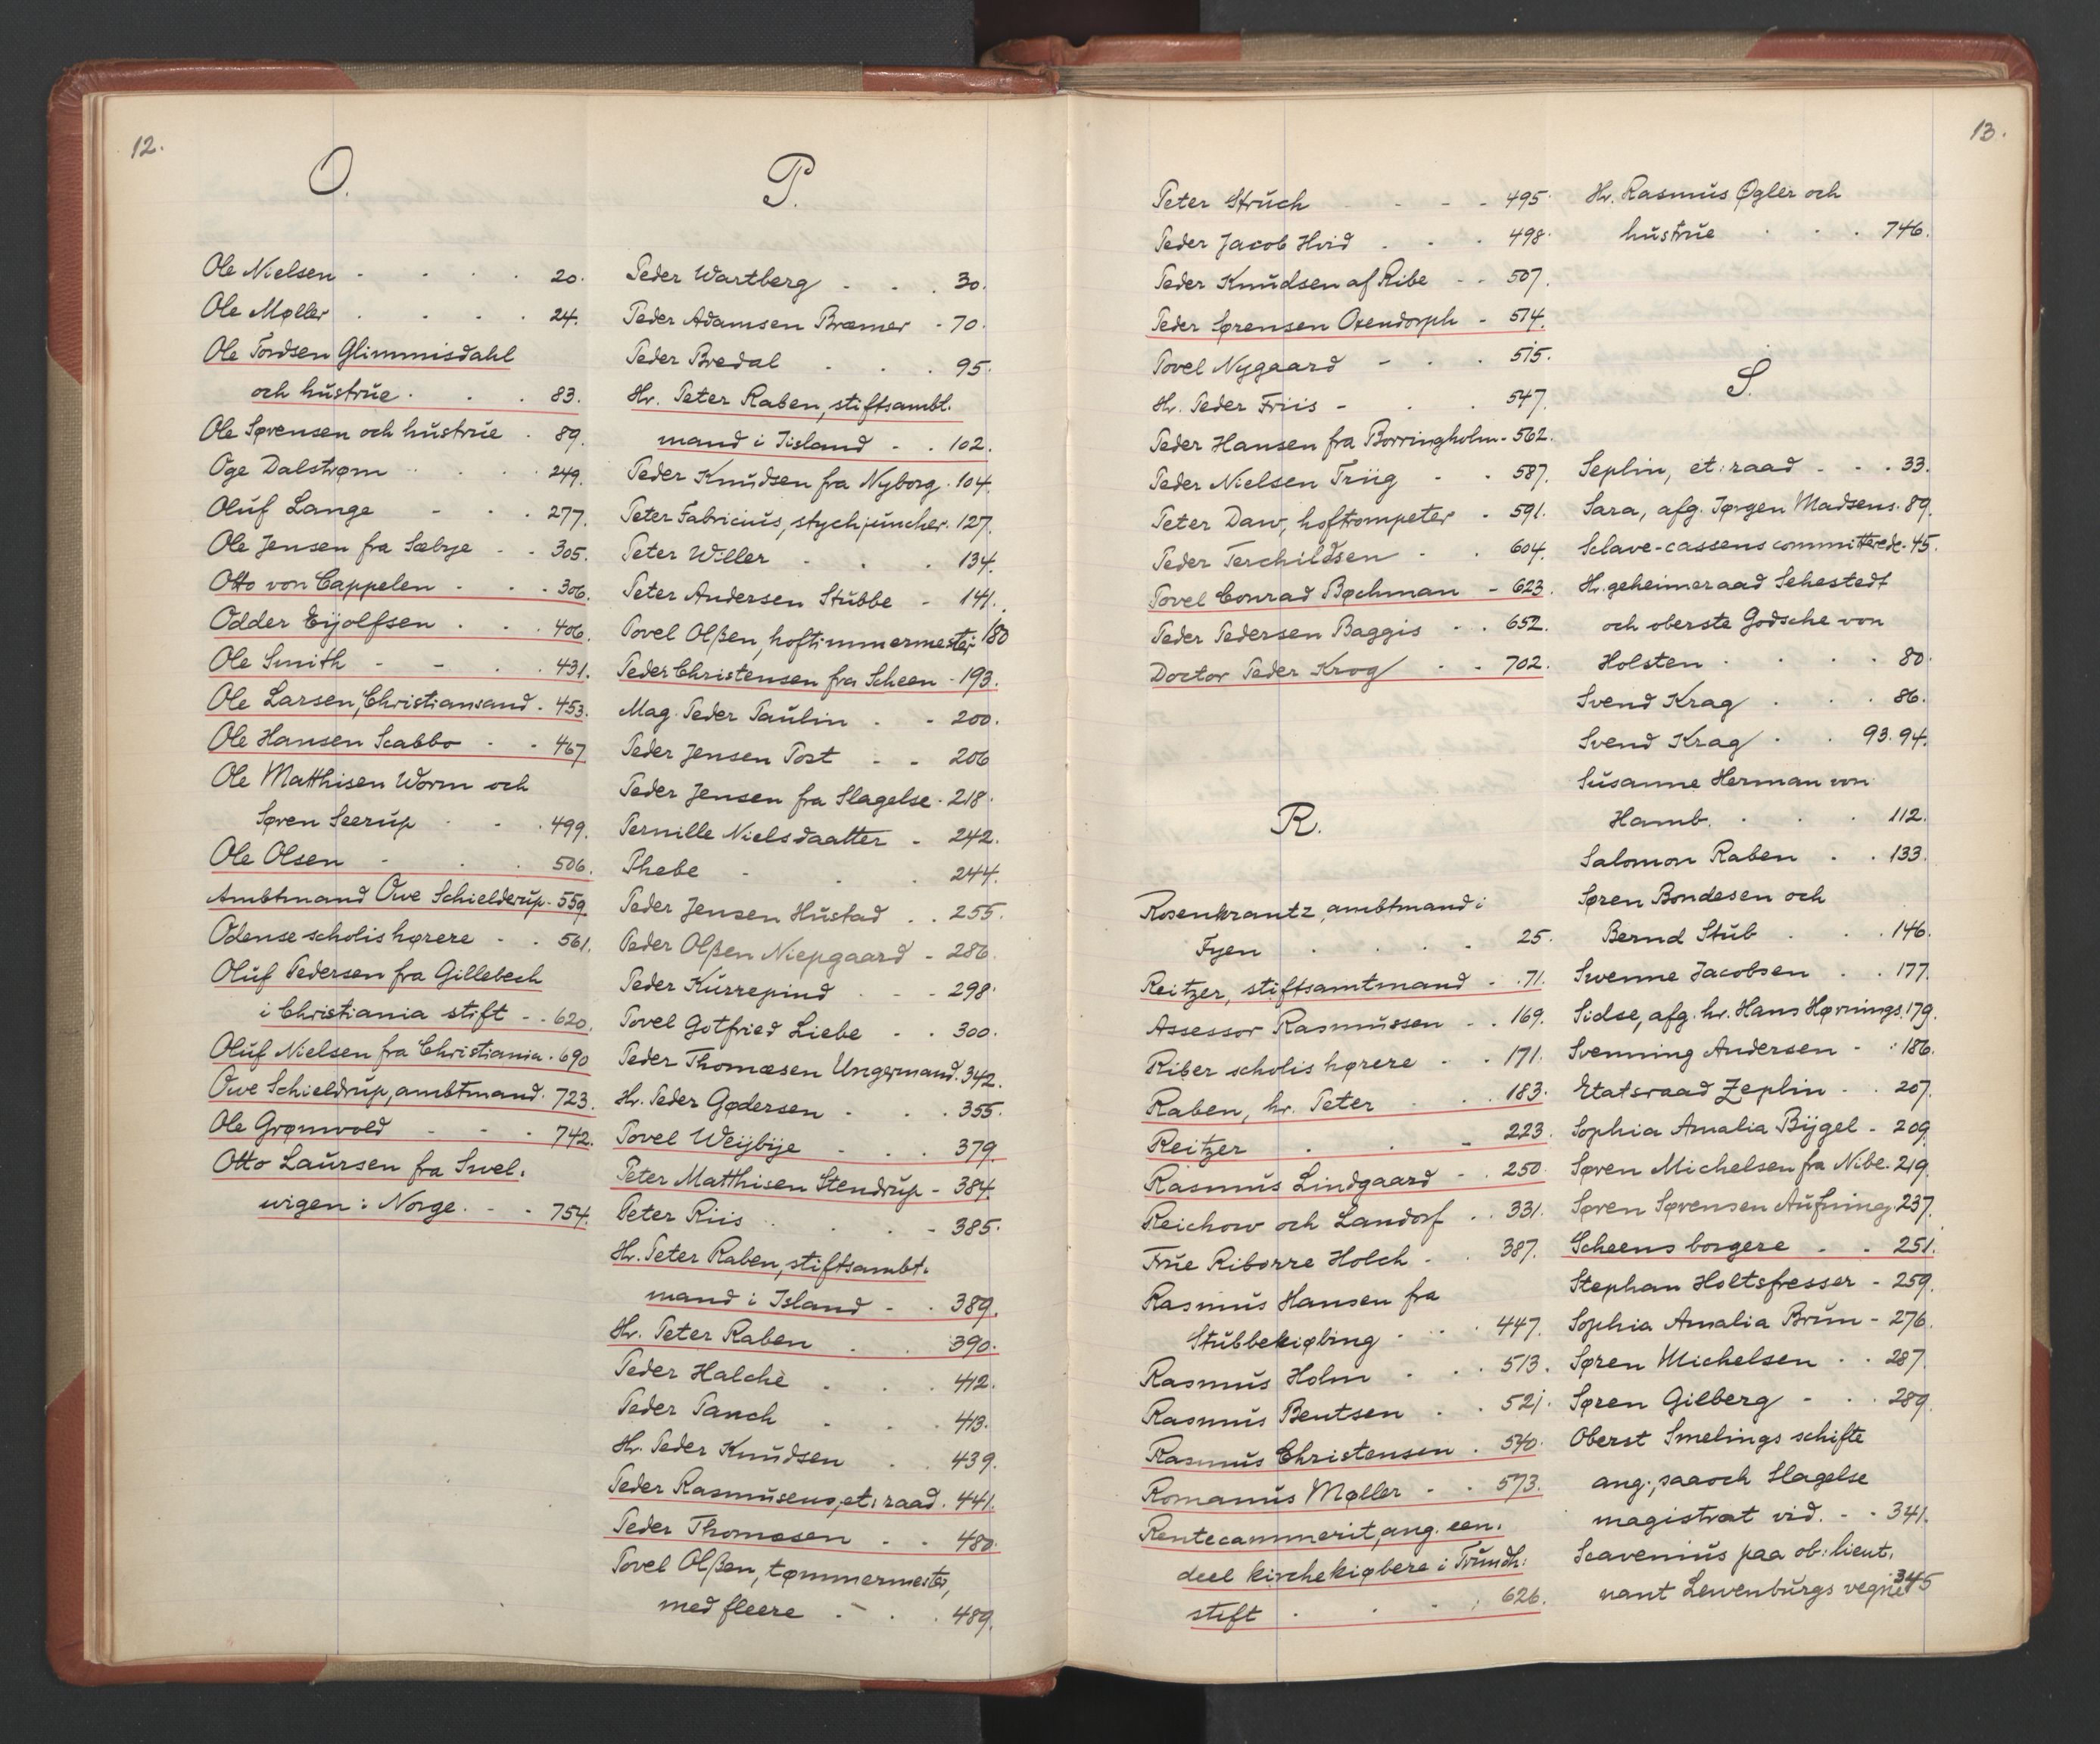 12.
O.
Ole Nielsen - - - - 20.
Ole Møller . . . . 24.
Ole Tordsen Glimmisdahl
och hustrue . . . 83.
Ole Sørensen och hustrue . 89.
Oge Dalstrøm . . . . 249.
Oluf Lange - - . 277.
Ole Jensen fra Sæbye - - 305.
Otto von Cappelen - - - 306.
Odder Eijolfsen . . . 406.
Ole Smith - - . . 431.
Ole Larsen, Christiansand . 453.
Ole Hansen Scabbo - - 467
Ole Matthisen Worm och
Søren Seerup . - . 499.
Ole Olsen - . . 506.
Ambtmand Owe Schielderup - 559.
Odense scholis hørere - . 561.
Oluf Pedersen fra Gillebech
i Christiania stift - - 620.
Oluf Nielsen fra Christiania . 690
Owe Schieldrup, ambtmand . 723.
Ole Grønwold - - . 742.
Otto Laursen fra Swel-
wigen i Norge . - - 754.
P.
Peder Wartberg - - . 30.
Peder Adamsen Bræmer - 70.
Peder Bredal . . . 95.
Hr. Peter Raben, stiftsambt-
mand i Iisland - . 102.
Peder Knudsen fra Nyborg . 104.
Peter Fabricius, stychjuncher . 127.
Peter Willer - . . 134.
Peter Andersen Stubbe - 141.
Povel Olßen, hoftimmermester 180
Peder Christensen fra Scheen - 193.
Mag. Peder Paulin . - 200.
Peder Jensen Post - - 206
Peder Jensen fra Slagelse . 218.
Pernille Nielsdaatter - 242.
Phebe - . . 244.
Peder Jensen Hustad . . 255.
Peder Olßen Niepgaard - 286.
Peder Kurrepind . - - 298.
Povel Gotfried Liebe - . 300.
Peder Thomæsen Ungermand . 342.
Hr. Peder Gødersen - . . 355.
Povel Weijbije - . . 379.
Peter Matthisen Stendrup - 384.
Peter Riis . . . - 385.
Hr. Peter Raben, stiftsambt-
mand i Island - . 389.
Hr. Peter Raben . . 390.
Peder Halche . . . 412.
Peder Panch . . . 413.
Hr. Peder Knudsen . . 439.
Peder Rasmusens, et: raad . 441.
Peder Thomæsen . - 480.
Povel Olßen, tømmermester,
med fleere - . . 489.
13.
Peter Struch - - - - 495.
Peder Jacob Hvid . . . 498.
Peder Knudsen af Ribe - - 507.
Peder Sørensen Oxendorph - 514.
Povel Nygaard - . . 515.
Hr. Peder Friis - . . 547.
Peder Hansen fra Borringholm - 562.
Peder Nielsen Friig - . 587.
Peter Daw, hoftrompeter - 591.
Peder Terchildsen - . 604.
Povel Conrad Bøchman - 623.
Peder Pedersen Baggis - . 652.
Doctor Peder Krog . - 702.
R.
Rosenkrantz, ambtmand i
Fyen . . . - 25.
Reitzer, stiftsamtmand - . 71.
Assessor Rasmussen - . 169.
Riber scholis hørere - . 171.
Raben, hr. Peter . . . 183.
Reitzer . . - 223.
Rasmus Lindgaard - . 250.
Reichow och Landorf . . 331.
Frue Riborre Holch . . 387.
Rasmus Hansen fra
Stubbekiøbing . . . 447.
Rasmus Holm . . . 513.
Rasmus Bentsen . . 521.
Rasmus Christensen . 540.
Romanus Møller - . 573.
Rentecammerit, ang. een-
deel kirchekiøbere i Trundh:
stift . . . . 626.
Hr. Rasmus Øgler och
hustrue . . . 746.
S.
Seplin, et: raad - - . 33.
Sara, afg. Jørgen Madsens . 89.
Sclave-cassens committerede . 45.
Hr. geheimeraad Sehestedt
och oberste Godsche von
Holsten . . . . 80.
Svend Krag . . . 86.
Svend Krag . . 93. 94.
Susanne Herman von
Hamb. . . . 112.
Salomon Raben . . 133.
Søren Bondesen och
Bernd Stub . . . 146.
Swenne Jacobsen . . 177.
Sidse, afg. hr. Hans Hørnings . 179.
Svenning Andersen - . 186.
Etatsraad Zeplin - . 207.
Sophia Amalia Bijgel - 209.
Søren Michelsen fra Nibe . 219.
Søren Sørensen Aufning . 237.
Scheens borgere - - 251.
Stephan Holtsfresser - 259.
Sophia Amalia Brun - 276.
Søren Michelsen . . 287.
Søren Gilberg - . . 289.
Oberst Smelings schifte
ang., saa och Slagelse
magistrat vid. - - 341.
Scavenius paa ob: lieut-
nant Lewenburgs vegne 345